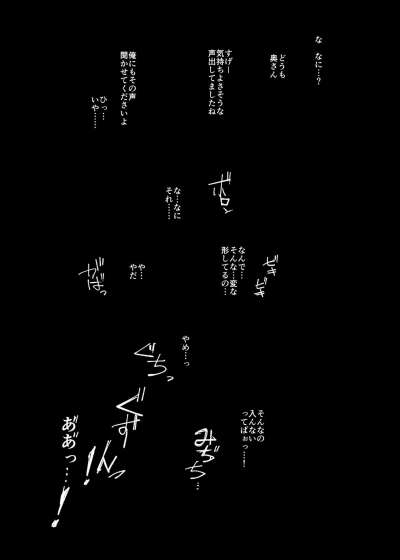 な なに…？
どうも
奥さん
すげー
気持ちよさそうな
声出してましたね
俺にもその声
聞かせてくださいよ
ひっ…
いや……
ボロン
な…なに
それ……
なんで…
そんな…変な
形してるの…
ビキ
ビキ
や…
やだ
がばっ
やめ…っ
ぐちっ
そんなの
入んない
ってばぉっ…！
みぢぢ…
ぐずんっ！
あ゙あ゙っ…！